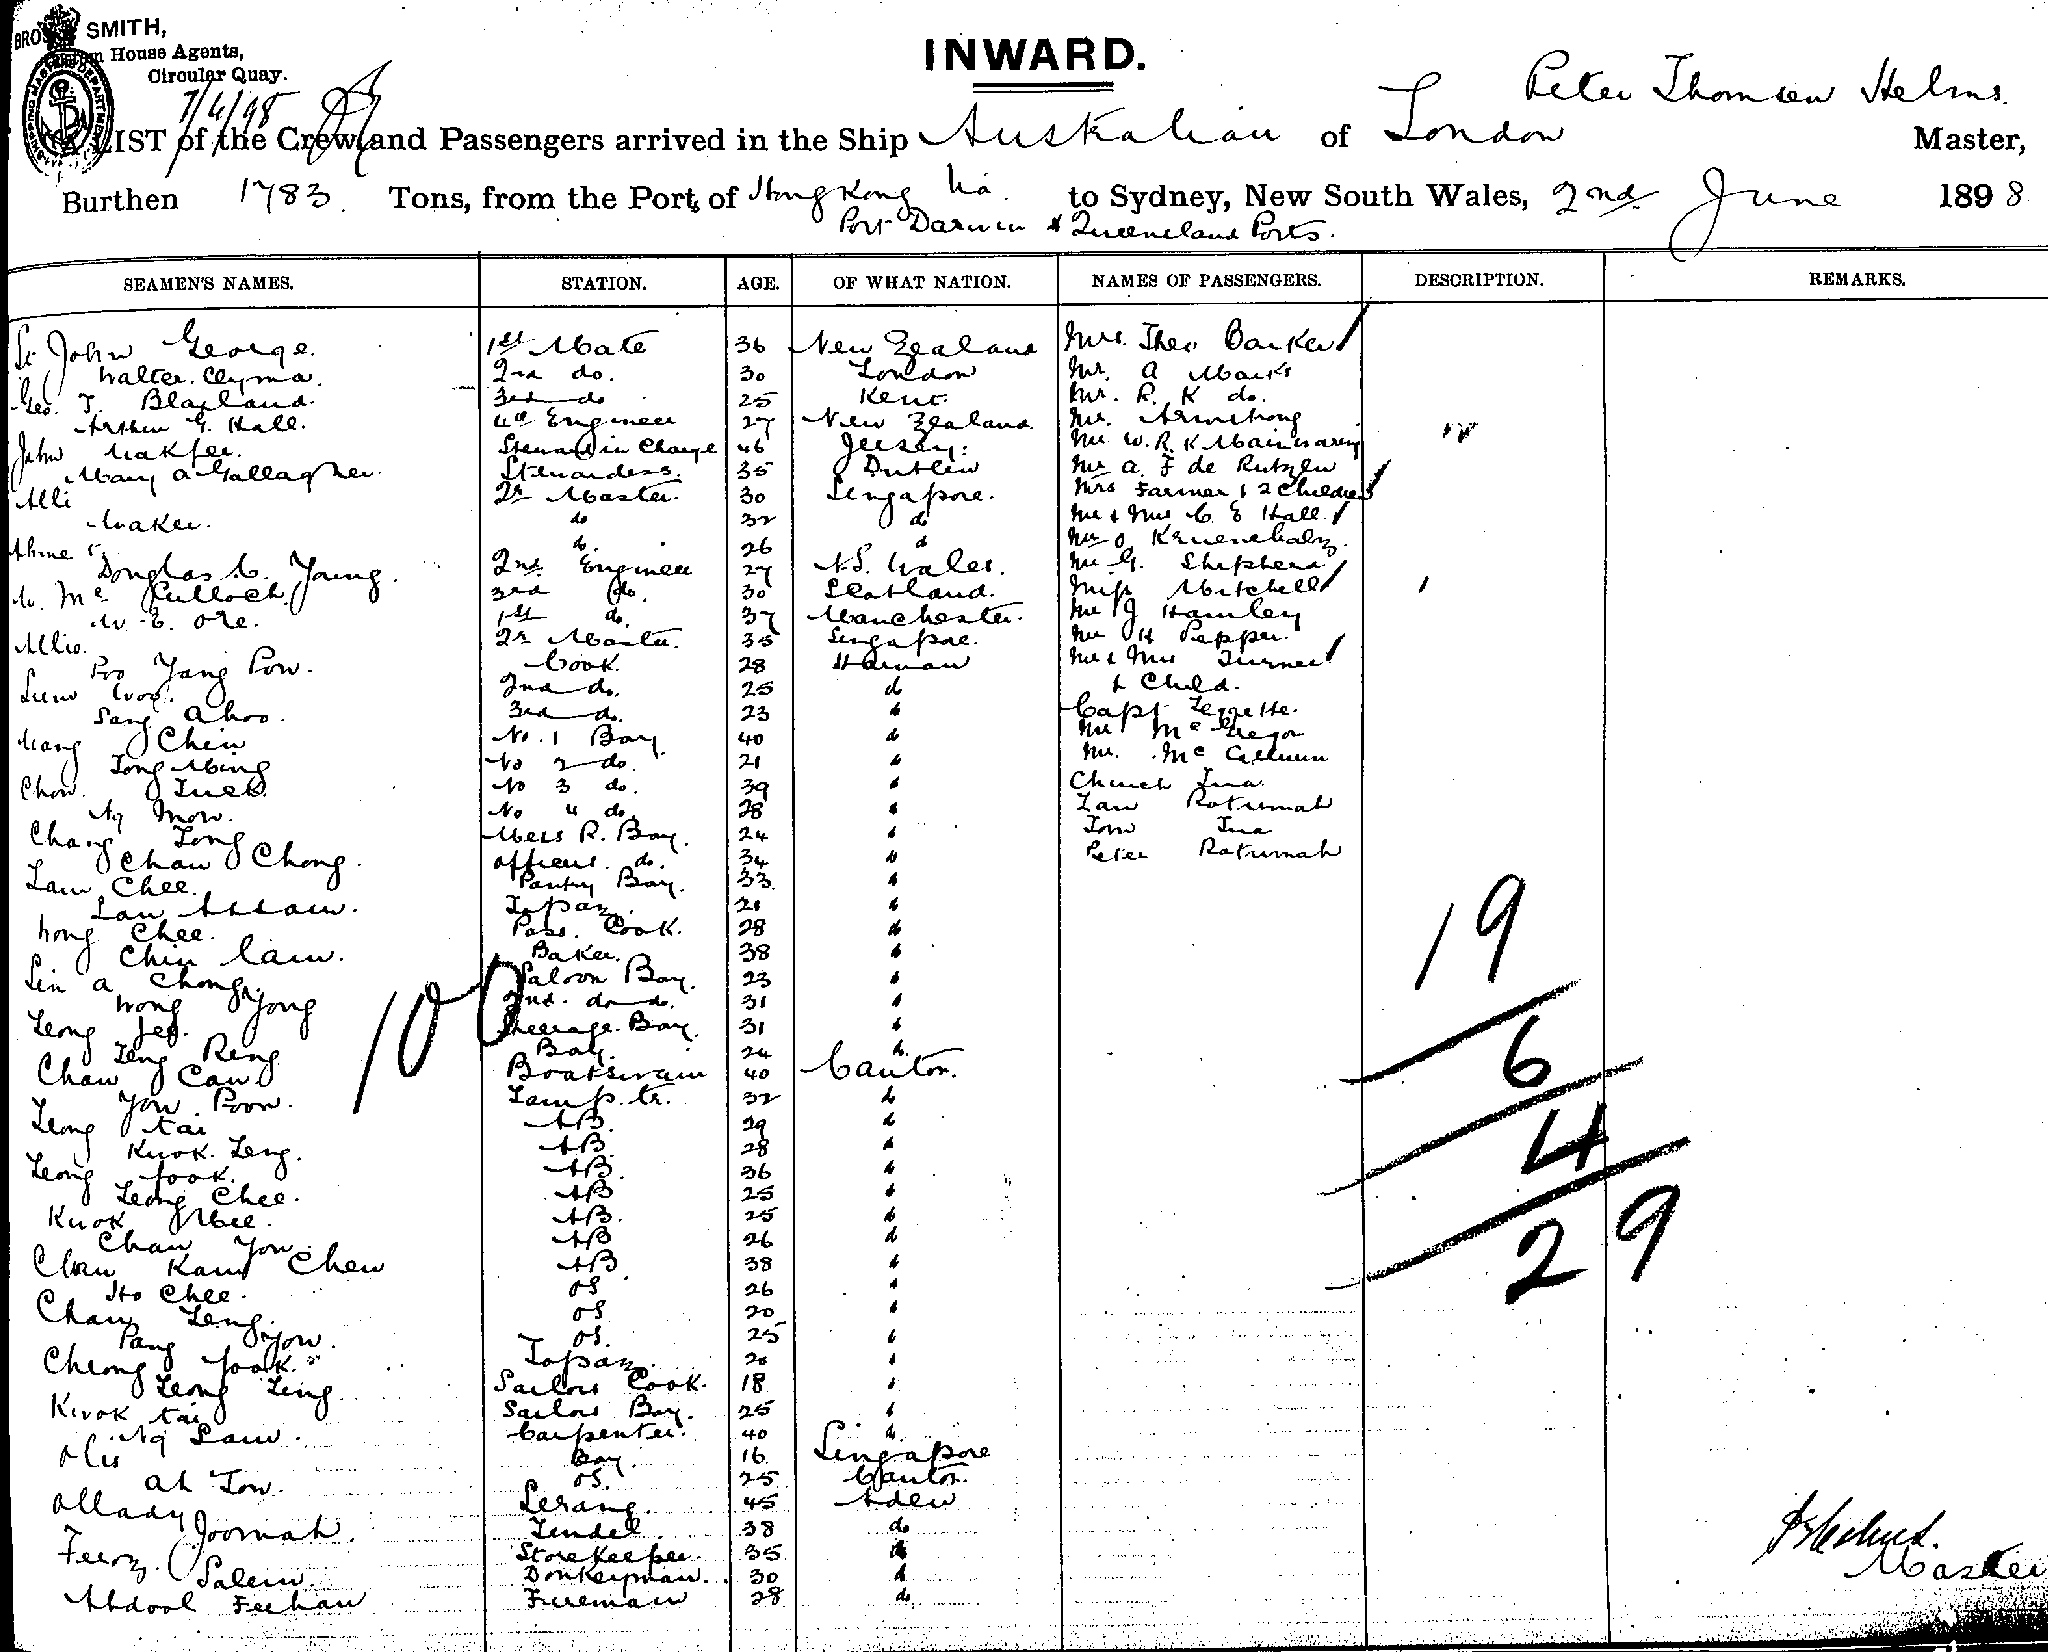 BROS SMITH,
House Agents,
Circular Quay.
INWARD.
Peter Thomsen Helms.
LIST of the Crew and Passengers arrived in the Ship Australian of London Master,
Burthen 1783 Tons, from the Port of Hong Kong Via to Sydney, New South Wales, 2nd June 1898
Port Darwin & Queensland Ports.
SEAMEN'S NAMES. STATION. AGE. OF WHAT NATION. NAMES OF PASSENGERS. DESCRIPTION. REMARKS.
St John George. 1st Mate 36 New Zealand Mrs. Theo Barker
Walter. Clyma. 2nd do. 30 London Mr. A Marks
Geo. T. Blaxland. 3rd do 25 Kent. Mr. R. K do.
Arthur G. Hall. 4th Engineer 27 New Zealand Mr. Armstrong
John Steward in Charge 46 Jersey. Mr W. R. K Mainwaring
Mary A Gallagher. Stewardess. 35 Dublin Mr A. F de Rutzen
Alli 2r Master. 30 Singapore. Mrs Farmer & 2 Children
do 32 do Mr & Mrs C. E Hall.
do. 26 do Mr O
Douglas C. Young. 2nd Engineer 27 N.S. Wales. Mr G. Shepherd
W. Mc Culloch. 3rd do. 30 Scotland. Miss Mitchell
W. E. Ore. 1st do. 37 Manchester. Mr J Hamley
Allie. 2r Master. 35 Singapore. Mr H Pepper.
Foo Yang Pow. Cook. 28 Hainan Mr & Mrs Turner
Woo. 2nd do. 25 do & Child.
Sang Ahoo. 3rd do. 23 " Capt
Wang Chin No. 1 Boy. 40 do Mr Mc Gregor
Tong Ming No 2 do. 21 " Mr. Mc Callum
Chow Tuck No 3 do. 39 " Church Tua
Ng Mow. No 4 do. 28 " Law Rotumah
Chang Tong Mess R. Boy. 24 " Tom Tua
Chaw Chong. Officers. do. 34 " Peter Rotumah
Lam Chee. Pantry Boy. 33. "
Lau Assam. Topaz. 21 "
Wong Chee. Pass. Cook. 28 do
Chin Cam. Baker. 38 "
Lin A Chong. Saloon Boy. 23 "
Wong Yong 2nd. do do. 31 "
Leong Steerage. Boy. 31 "
Leng Reng Boy. 24 "
Chan Caw Boatswain 40 Canton.
You Poon. Lamp. tr. 32 do
Leong tai AB. 29 do
Kwok Leng. AB. 28 "
Leong fook. AB. 36 "
Leong Chee. AB 25 "
Kwok Mee. AB. 25 "
Chan You AB 26 do
Chan Kam Chew AB 38 "
Ho Chee. OS 26 "
Chan Leng. OS 20 "
Pang You. OS. 25 "
Cheong fook. Topaz. 20 "
Leong Ling Sailors Cook. 18 "
Kwok tai Sailors Boy. 25 "
Ng Lam. Carpenter. 40 do
Olis Boy. 16 Singapore
Ah Tow. OS. 25 Canton.
Ollady Serang. 45 Aden
Joomah. Tindel. 38 do
Feroz Storekeeper. 35 do
Salem. Donkeyman. 30 do
Abdool Feehan Fireman 28 do
100
19
6
4
29
Master